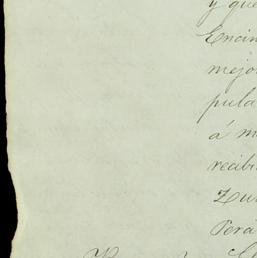 y que
Encin
mejo
pula
á m
recib
Zur
Perá